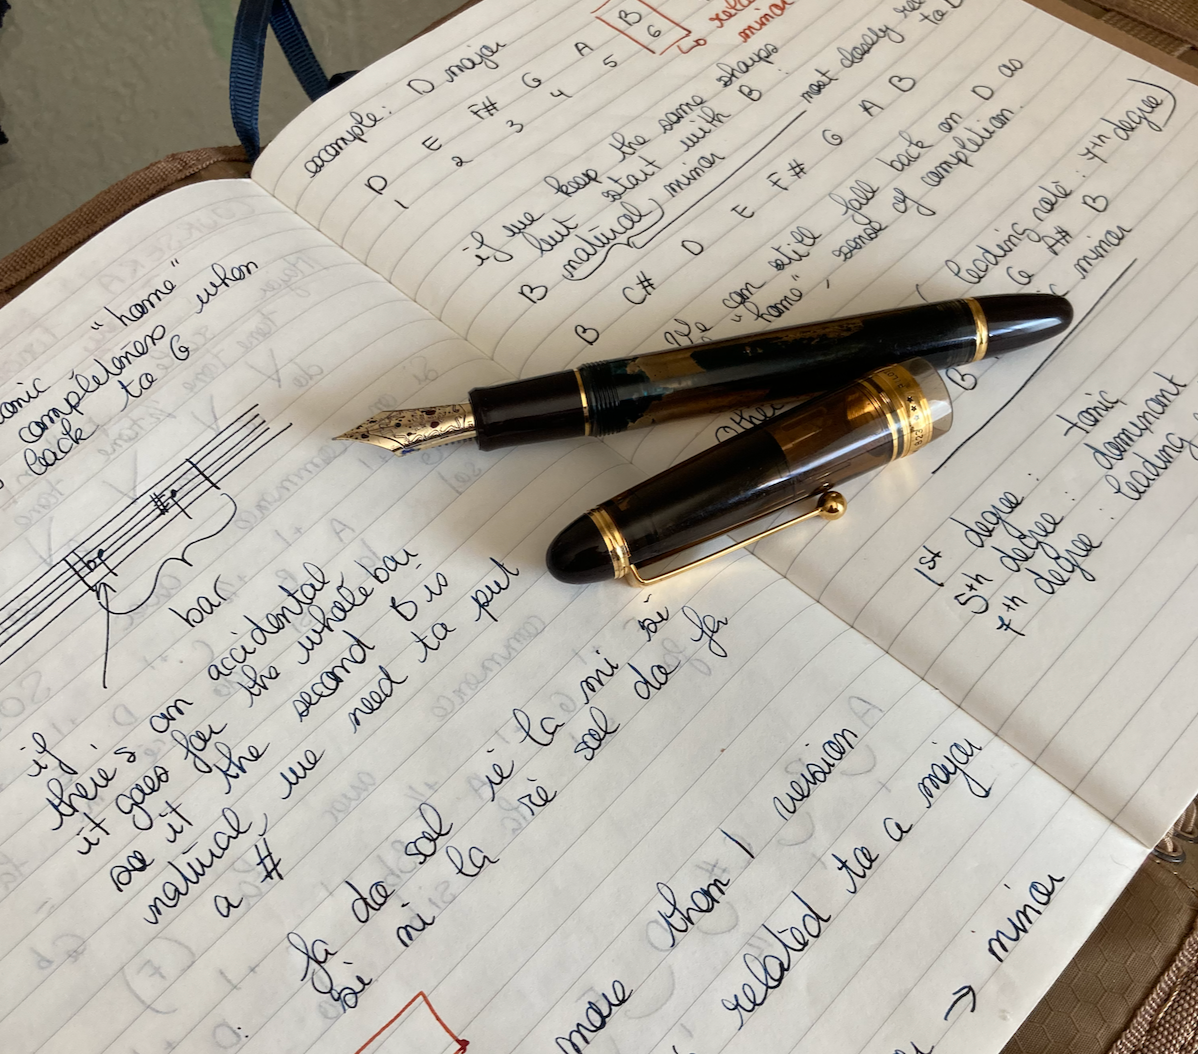 "home"
completeness when
back to G
bar
if
there's an accidental
it goes for the whole bar
so it the second B is
natural, we need to put
a #
fa do sol ré la mi si
si mi la ré sol do fa
more than 1 version
related to a major
→ minor
example: D major
D E F# G A B
1 2 3 4 5 6
minor
if we keep the same sharps
but start with B:
B natural minor
most closely
to
B C# D E F# G A B
We can still fall back on D as
"home", sense of completion
leading note: 7th degree)
G A# B
minor
B
1st degree: tonic
5th degree: dominant
7th degree: leading